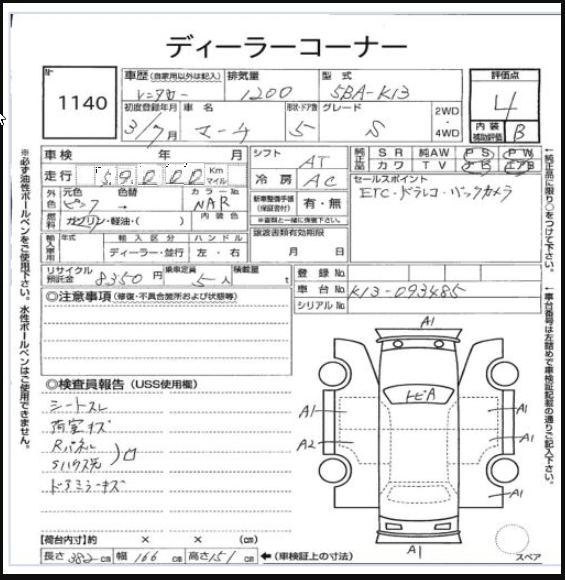 ディーラーコーナー
№ 1140
車歴 (自家用以外は記入) レンタカー
排気量 1200
型式 5BA-K13
評価点 4
内装 補助評価 B
初度登録年月 31/7月
車名 マーチ
形状・ドア数 5
グレード S
2WD
4WD
車検 年 月
走行 59,000 Km マイル
シフト AT
冷房 AC
純正品 SR 純AW PS PW
カワ TV
外色 元色 ピンク → 色替
カラーNo. NAR
燃料 ガソリン・軽油・( )
内装色
新車整備手帳 (保証書付) 有・無
※書類と一緒に保管下さい。
セールスポイント
ETC・ドラレコ・バックカメラ
輸入車用 年式 輸入区分 ハンドル
ディーラー・並行 左・右
譲渡書類有効期限
月 日
リサイクル預託金 8350円
乗車定員 5人
積載量 t
登録No.
車台No. K13-093485
シリアルNo.
◎注意事項 (修復・不具合箇所および状態等)
◎検査員報告 (USS使用欄)
シートスレ
荷室キズ
Rパネル
ドアミラーキズ
A1
トビA
A1
A2
A1
A1
A1
A1
スペア
【荷台内寸】約 × × (cm)
長さ 382 cm 幅 166 cm 高さ 151 cm ←(車検証上の寸法)
※必ず油性ボールペンをご使用下さい。水性ボールペンはご使用できません。
←純正品に限り○をつけて下さい。
←車台番号は左詰めで車検証記載の通りご記入下さい。